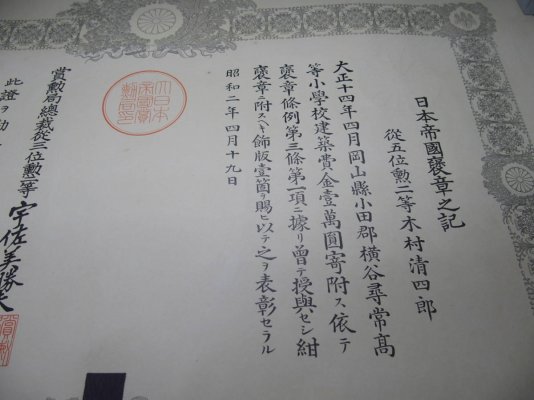 日本帝國褒章之記
從五位勲二等木村清四郎
大正十四年四月岡山縣小田郡横谷尋常高
等小學校建築費金壹萬圓寄附ス依テ
褒章條例第三條第一項ニ據リ曾テ授與セシ紺
褒章ニ附スヘキ飾版壹箇ヲ賜ヒ以テ之ヲ表彰セラル
昭和二年四月十九日
大日本
帝國賞
勲局印
賞勲局總裁從三位勲一等宇佐美勝夫
此證ヲ勘